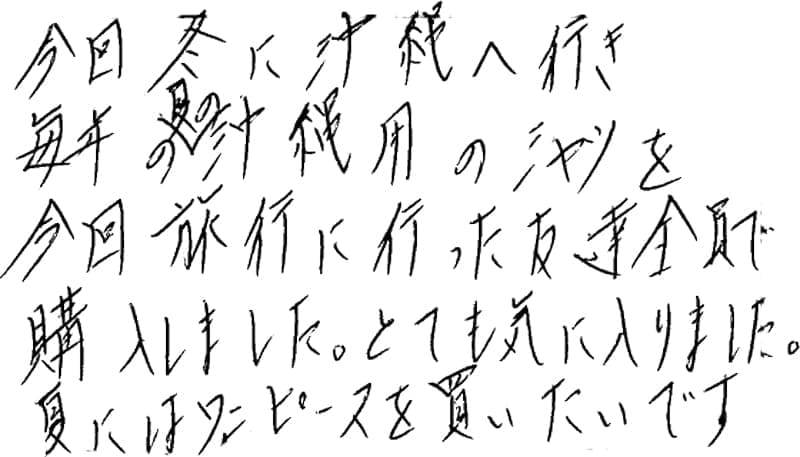 今回冬に沖縄へ行き
毎年の夏の沖縄用のシャツを
今回旅行に行った友達全員で
購入しました。とても気に入りました。
夏にはワンピースを買いたいです